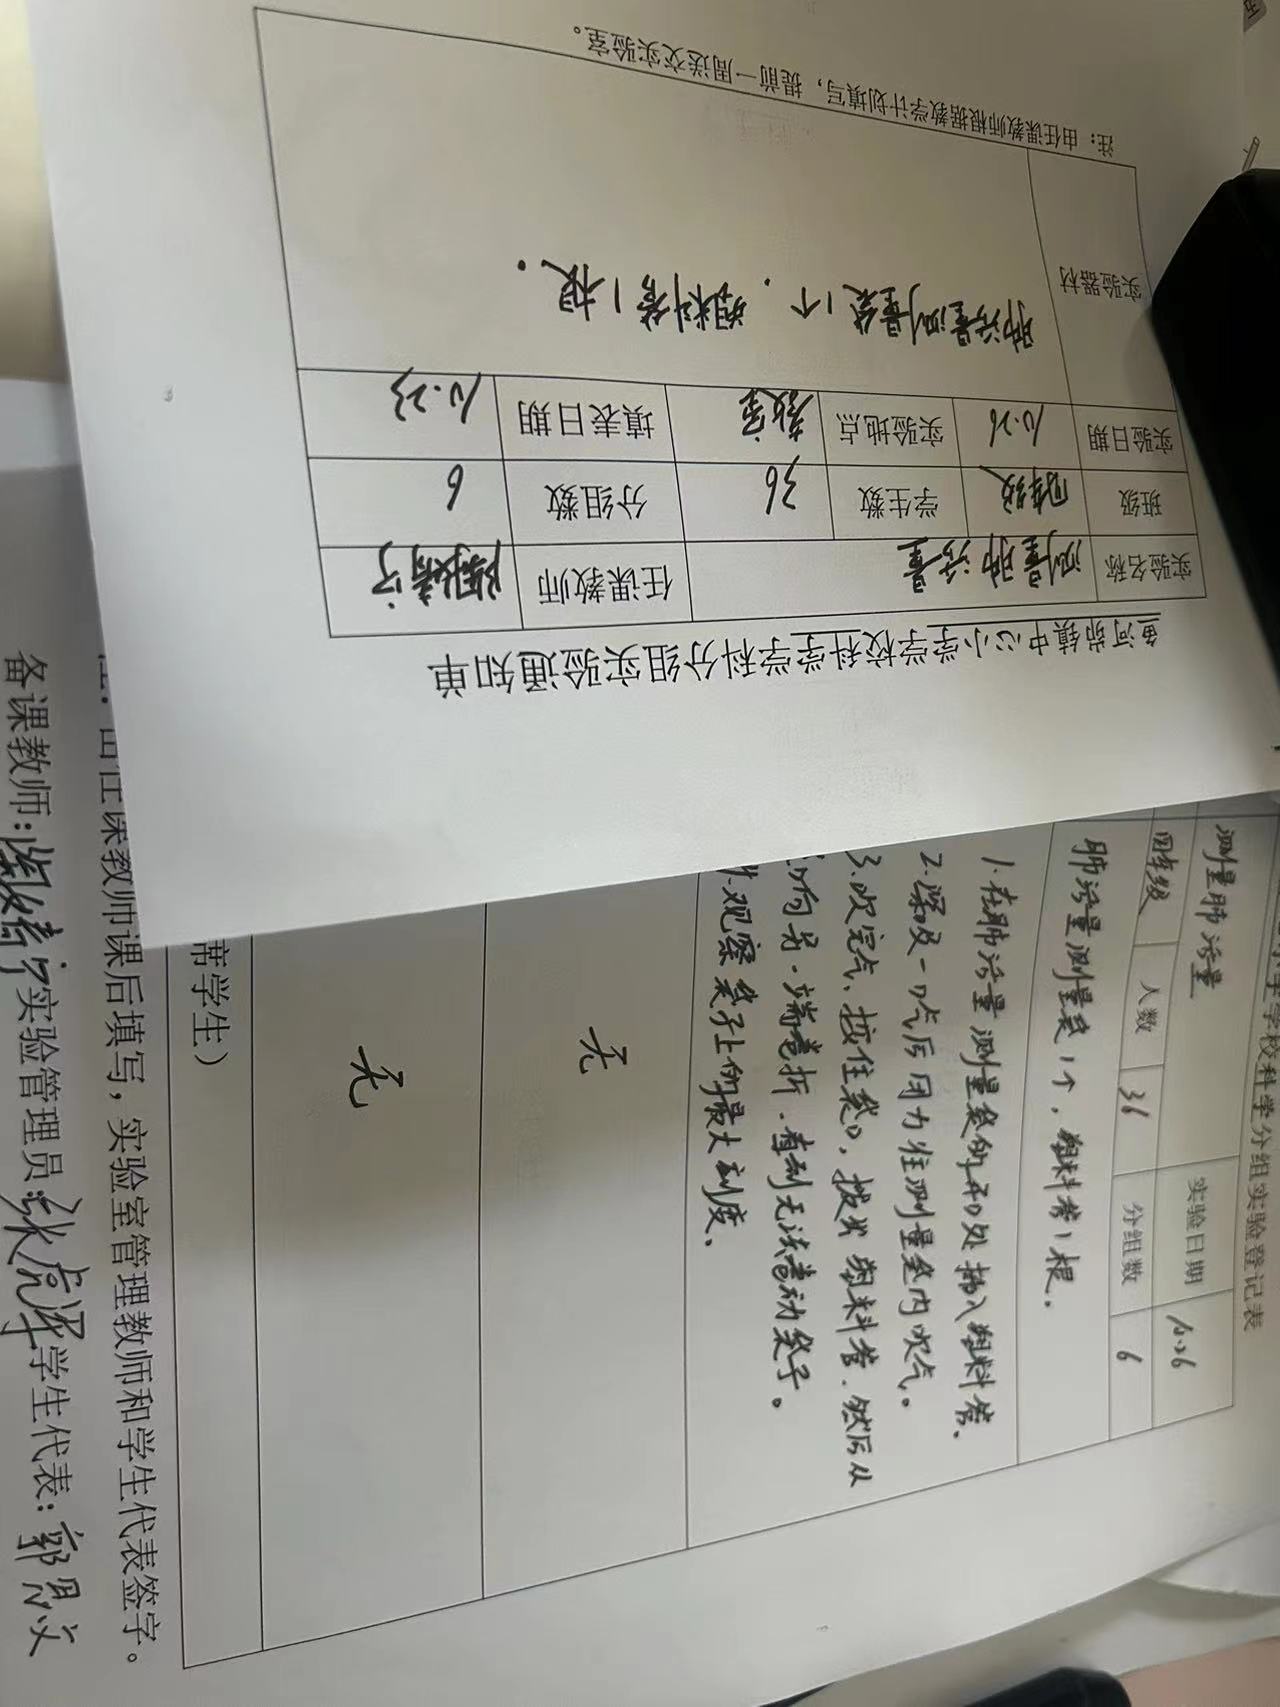 鱼河峁镇中心小学学校科学学科分组实验通知单
实验名称 测量肺活量 任课教师
班级 四年级 学生数 36 分组数 6
实验日期 10.26 实验地点 教室 填表日期 10.23
实验器材 肺活量测量袋1个，塑料管1根.
注：由任课教师根据教学计划填写，提前一周送交实验室。
学校科学分组实验登记表
测量肺活量 实验日期 10.26
四年级 人数 36 分组数 6
肺活量测量袋1个，塑料管1根.
1.在肺活量测量袋的开口处插入塑料管.
2.深吸一口气后用力往测量袋内吹气。
3.吹完气、按住袋口，拔出塑料管.然后从
向另一端卷折.直到无法卷动袋子。
4.观察袋子上的最大刻度.
无
无
席学生）
由任课教师课后填写，实验室管理教师和学生代表签字。
备课教师: 实验管理员: 学生代表: